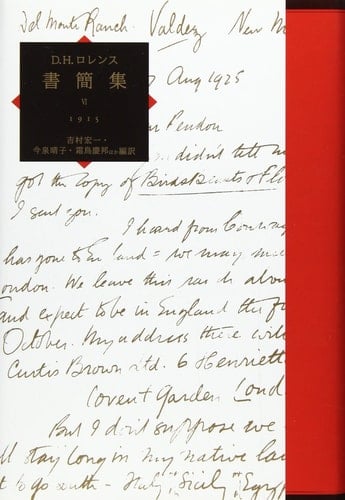 Del Monte Ranch. Valdez New M
D.H.ロレンス
書簡集
Ⅵ
1915
吉村宏一・
今泉晴子・霜鳥慶邦ほか編訳
Aug 1925
Pendon
didn't tell
got the copy of Birds Beasts & Fl
I sent you.
I heard from Conway
has gone to England = we may
London. We leave this ranch abou
and expect to be in England the fi
October. My address there will
Curtis Brown Ltd. 6 Henriett
Covent Garden Lond
But I don't suppose we
ll stay long in my native lan
t to go south - Italy Sicily Egyp